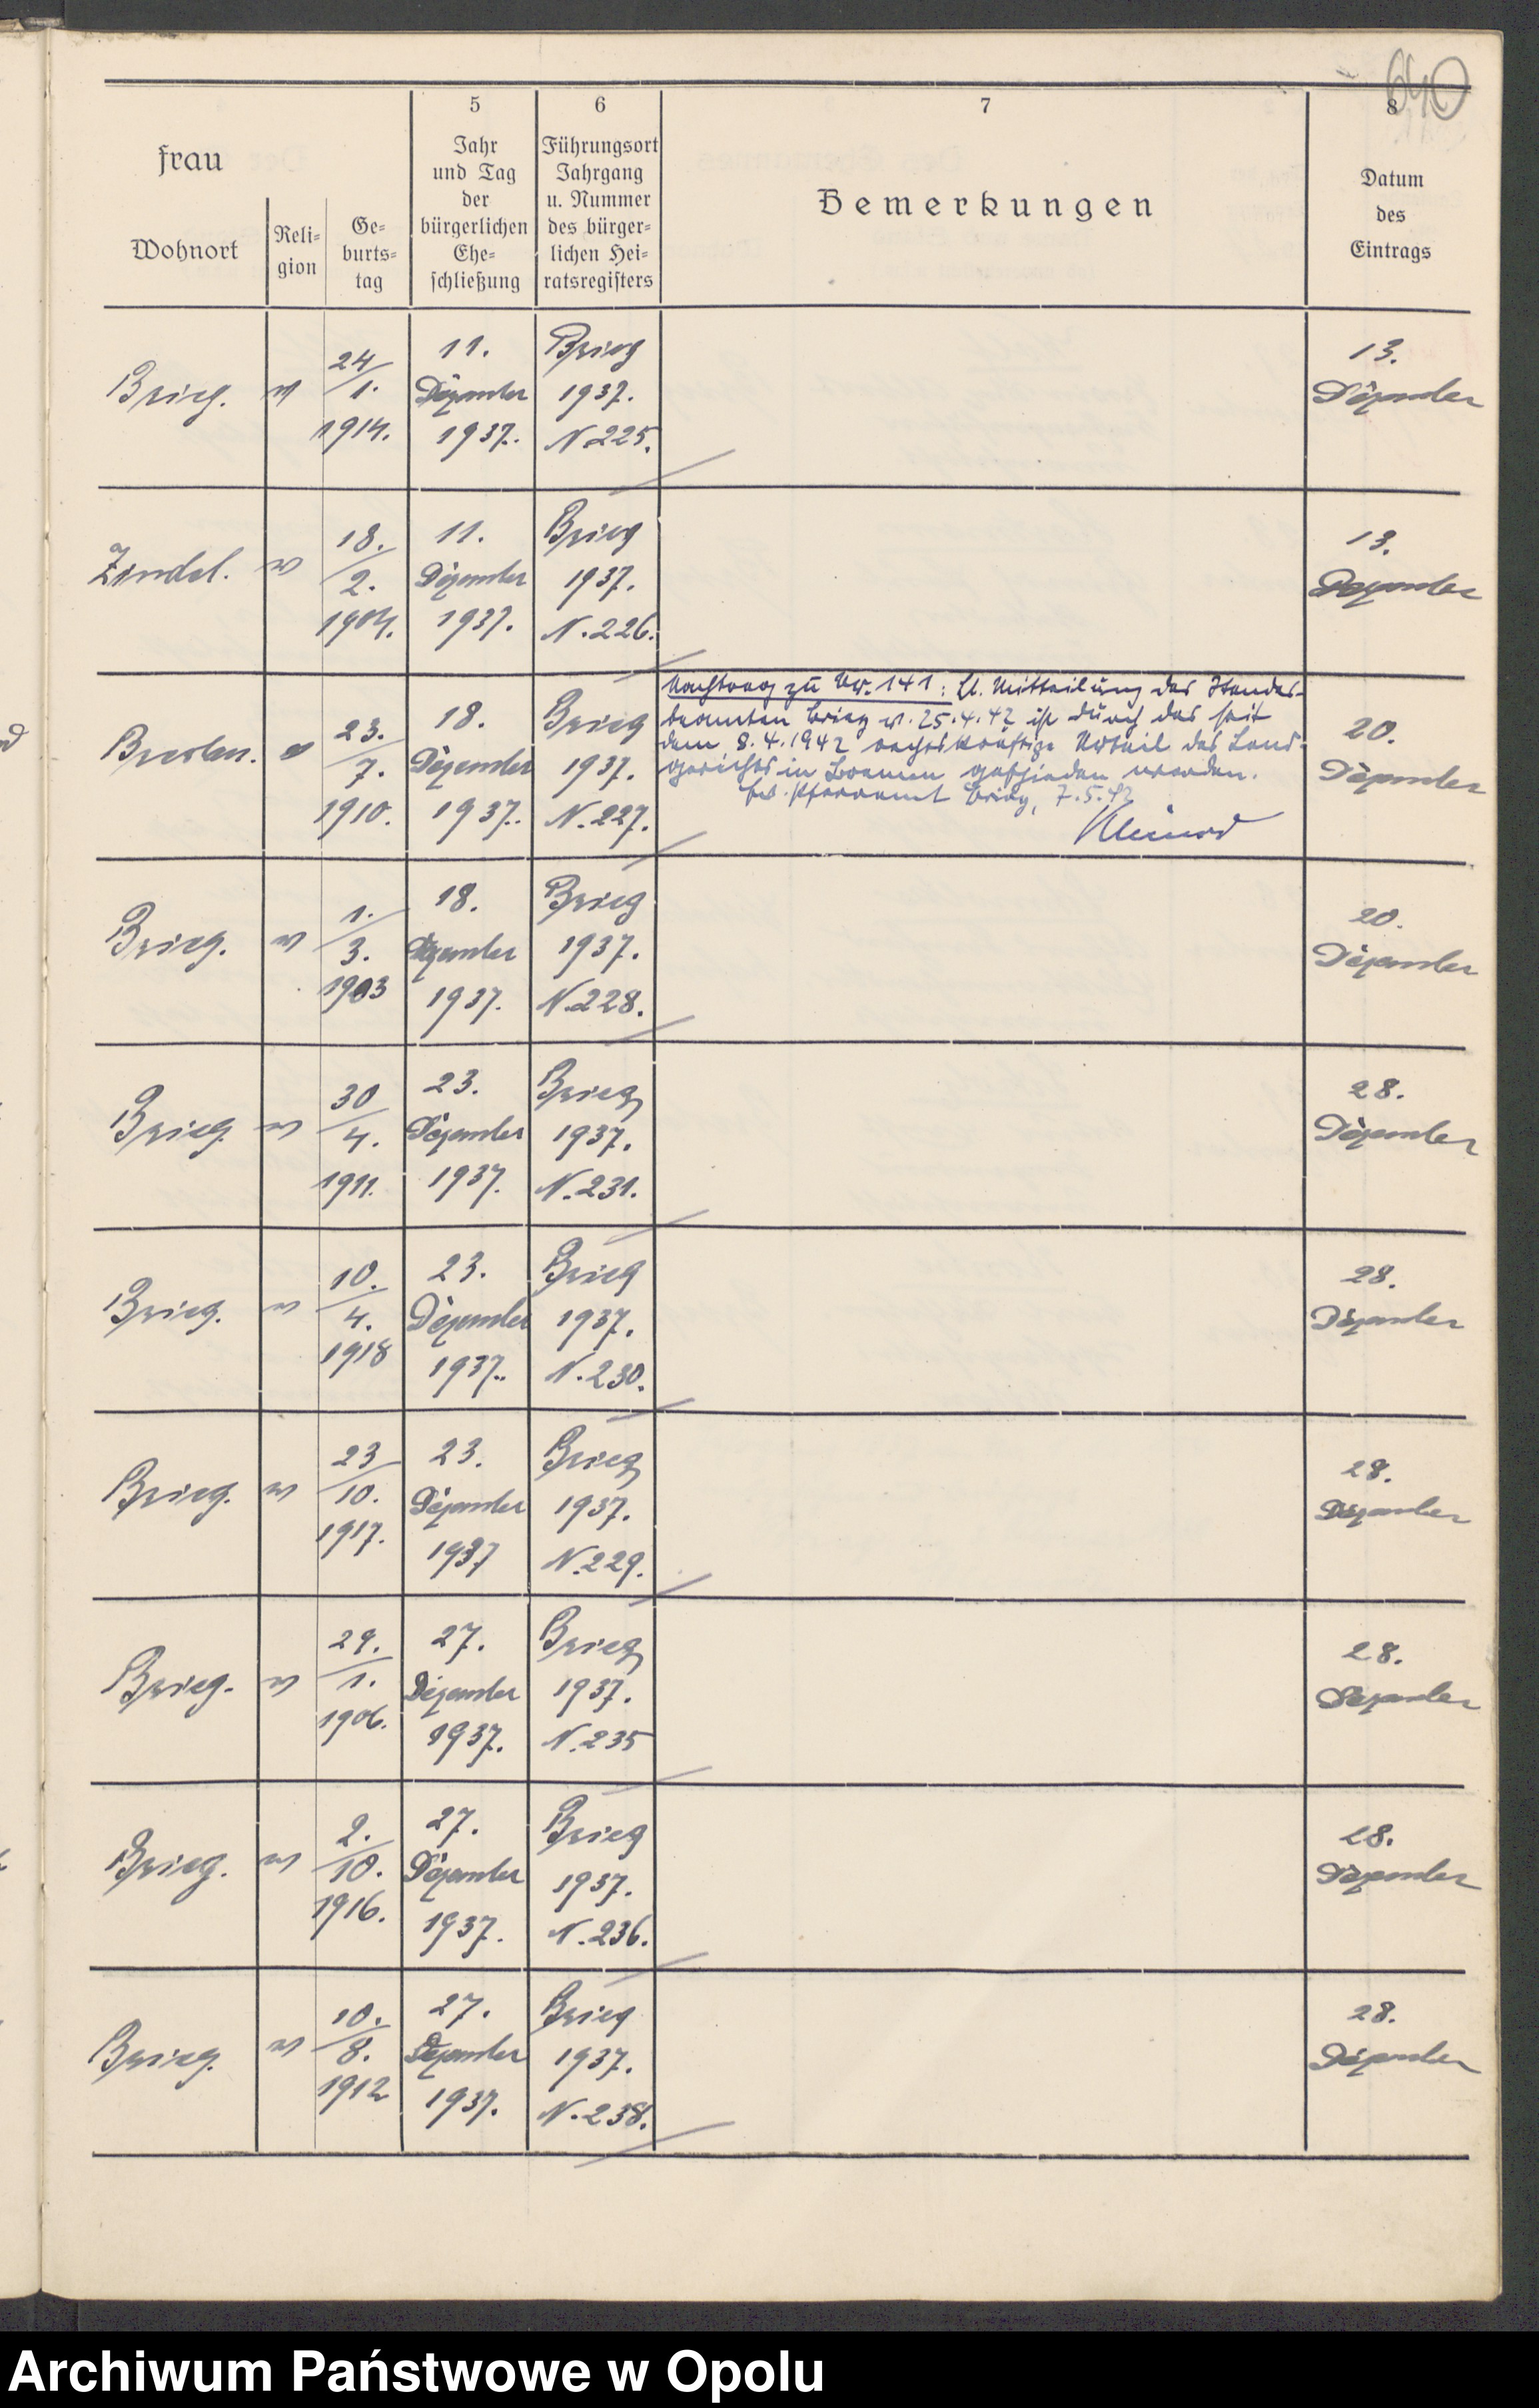 640
frau
Wohnort
Reli-
gion
Ge-
burts-
tag
5
Jahr
und Tag
der
bürgerlichen
Ehe-
schließung
6
Führungsort
Jahrgang
u. Nummer
des bürger-
lichen Hei-
ratsregisters
7
Bemerkungen
8
Datum
des
Eintrags
Brieg. 24/1. 1914. 11. Dezember 1937. Brieg 1937. N 225. 13. Dezember
Zindel. 18./2. 1904. 11. Dezember 1937. Brieg 1937. N. 226. 13. Dezember
Breslau. 23./7. 1910. 18. Dezember 1937. Brieg 1937. N. 227.
Nachtrag zu Nr. 141: Lt. Mitteilung des Standes-
beamten Brieg v. 25.4.42 ist durch das seit
dem 8.4.1942 rechtskräftige Urteil des Land-
gerichts in Bremen geschieden worden.
Pfarramt Brieg, 7.5.42
20. Dezember
Brieg. 1./3. 1903 18. Dezember 1937. Brieg 1937. N. 228. 20. Dezember
Brieg. 30/4. 1911. 23. Dezember 1937. Brieg 1937. N. 231. 28. Dezember
Brieg. 10./4. 1918 23. Dezember 1937. Brieg 1937. N. 230. 28. Dezember
Brieg. 23/10. 1917. 23. Dezember 1937 Brieg 1937. N. 229. 28. Dezember
Brieg. 29./1. 1906. 27. Dezember 1937. Brieg 1937. N. 235 28. Dezember
Brieg. 2./10. 1916. 27. Dezember 1937. Brieg 1937. N. 236. 28. Dezember
Brieg. 10./8. 1912 27. Dezember 1937. Brieg 1937. N. 238. 28. Dezember
Archiwum Państwowe w Opolu